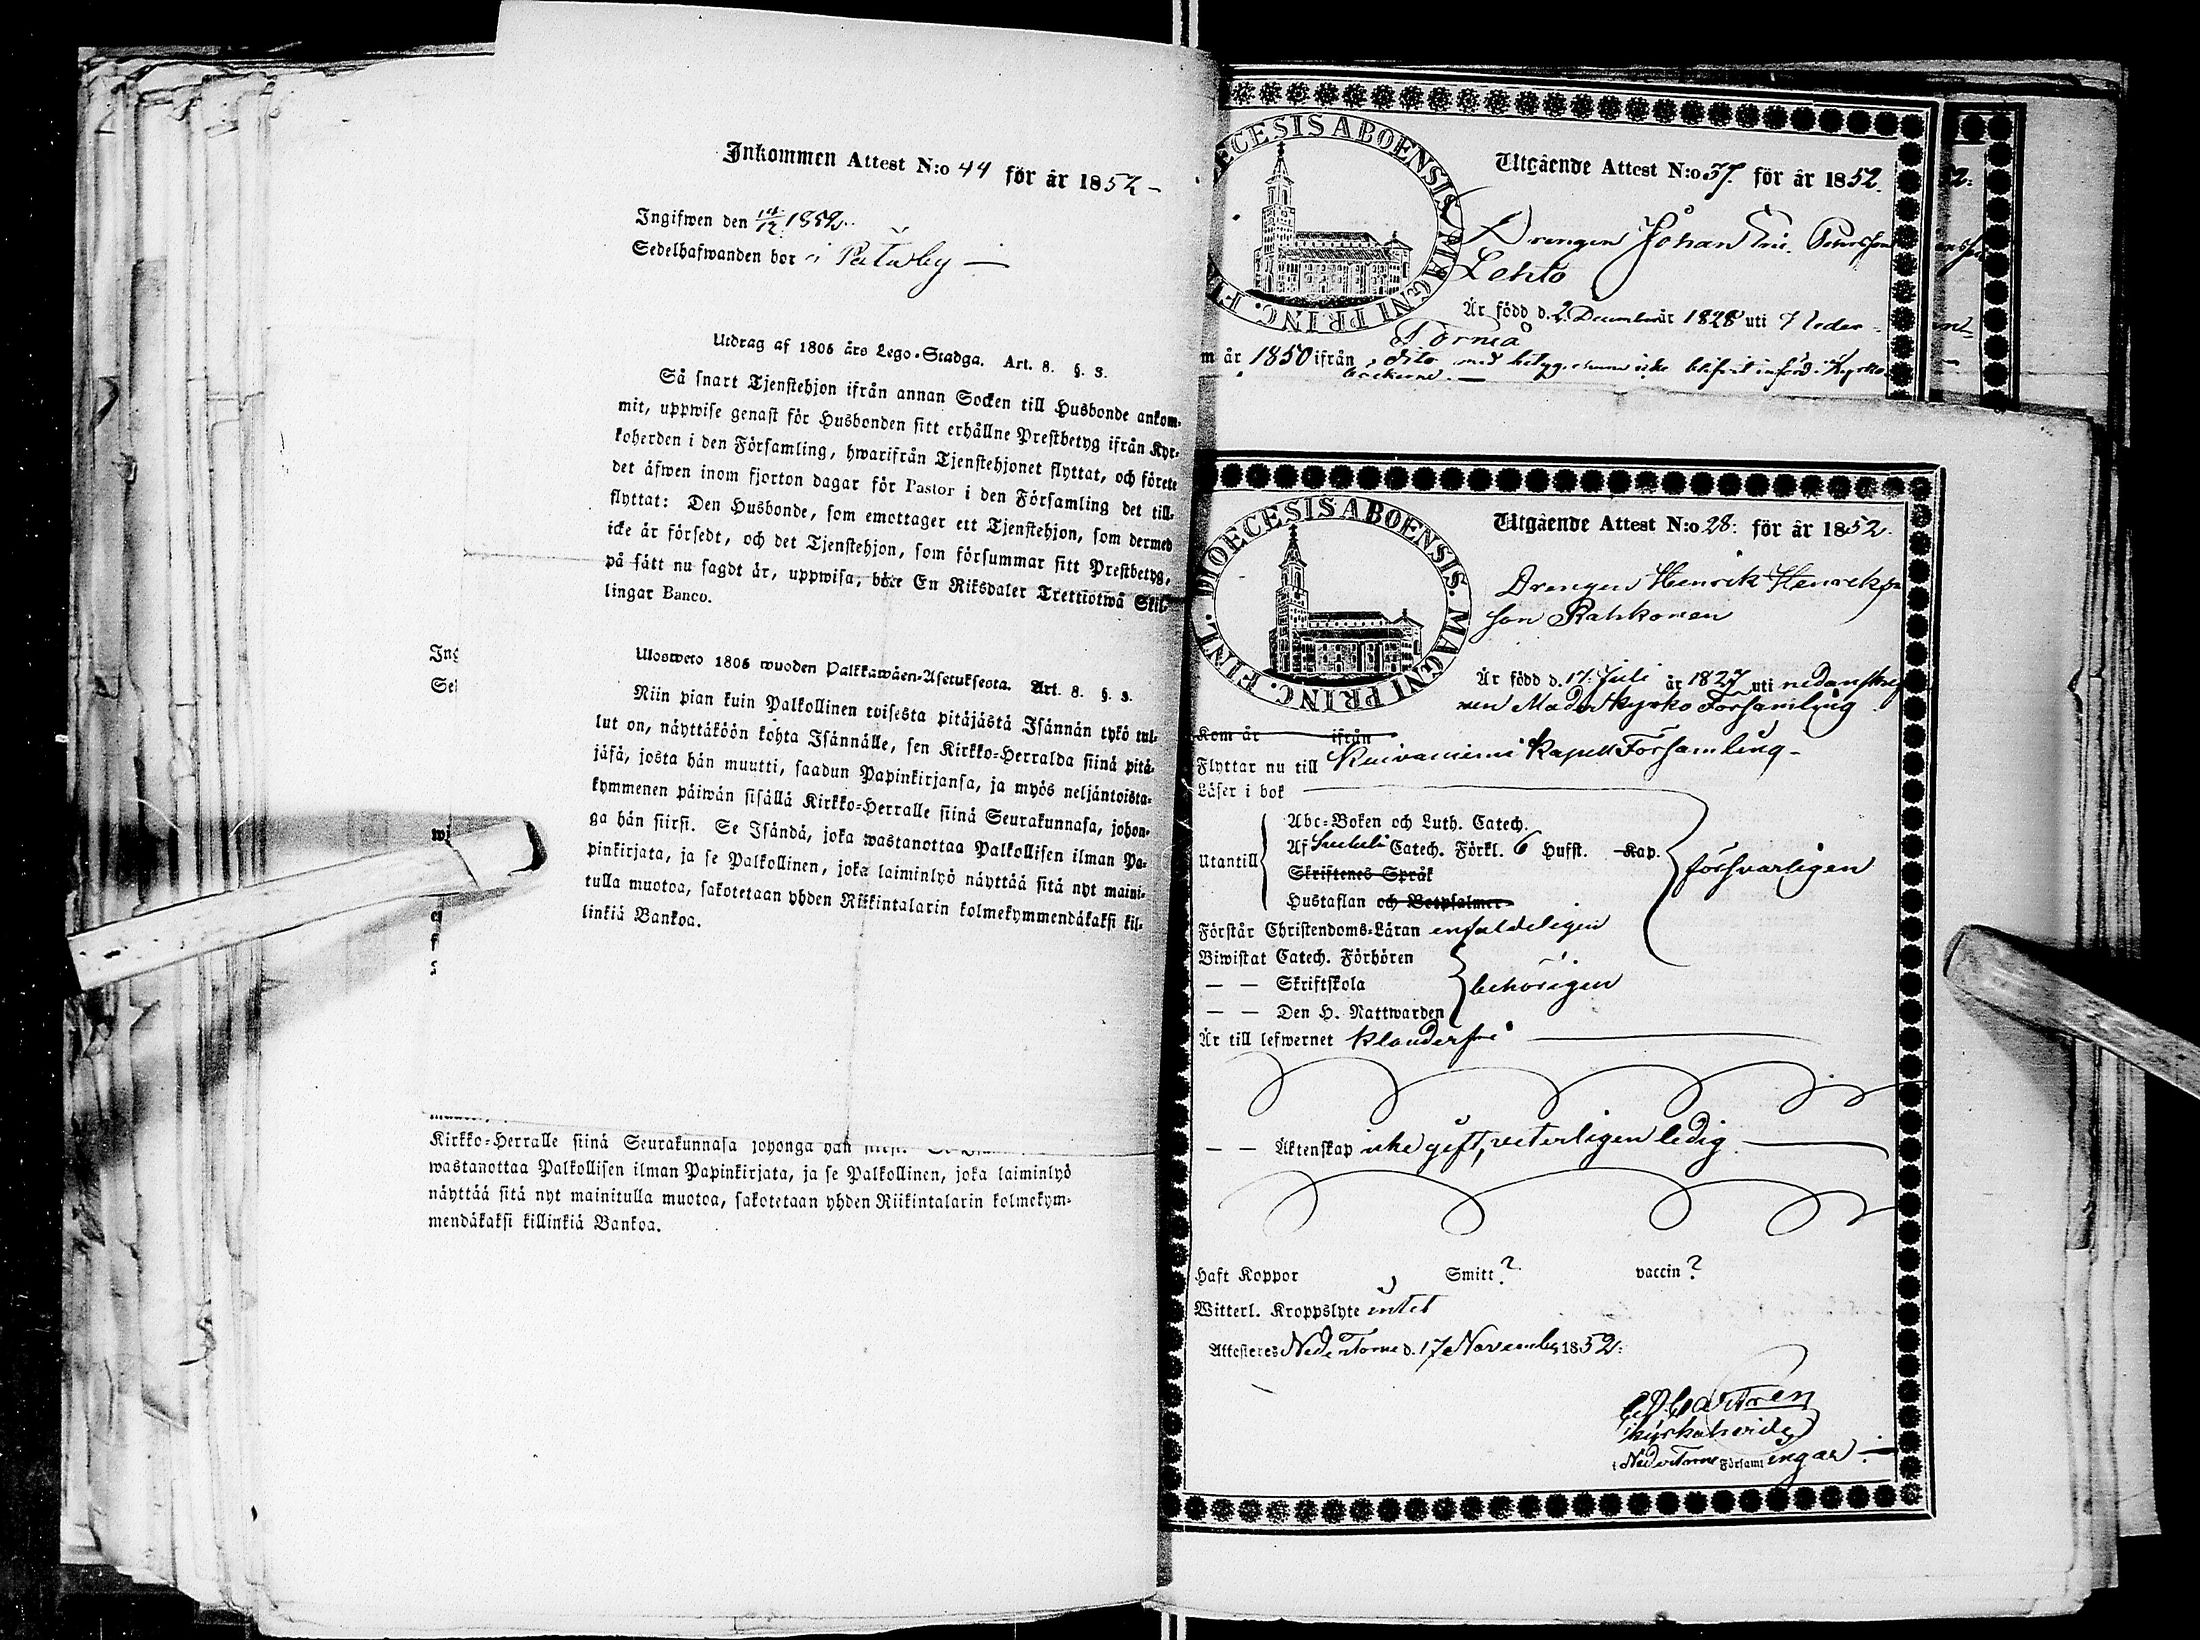 Inkommen Attest N:o 44 för år 1852 -
Ingifwen den 1852.
Sedelhafwanden bor i
Utdrag af 1805 års Lego-Stadga. Art. 8. §. 3.
Så snart Tjenstehjon ifrån annan Socken till Husbonde ankom-
mit, uppwise genast för Husbonden sitt erhållne Prestbetyg ifrån Kyr-
koherden i den Församling, hwarifrån Tjenstehjonet flyttat, och förete
det äfwen inom fjorton dagar för Pastor i den Församling det till-
flyttat: Den Husbonde, som emottager ett Tjenstehjon, som dermed
icke är försedt, och det Tjenstehjon, som försummar sitt Prestbetyg,
på sätt nu sagdt är, uppwisa, böte En Riksdaler Trettiotwå Skil-
lingar Banco.
Ulosweto 1805 wuoden Palkkawäen-Asetuksesta. Art. 8. §. 3.
Niin pian kuin Palkollinen toisesta pitäjästä Isännän tykö tul-
lut on, näyttäköön kohta Isännälle, sen Kirkko-Herralda siinä pitä-
jäsä, josta hän muutti, saadun Papinkirjansa, ja myös neljäntoista-
kymmenen päiwän sisällä Kirkko-Herralle siinä Seurakunnasa, johon-
ga hän siirsi. Se Isändä, joka wastanottaa Palkollisen ilman Pa-
pinkirjata, ja se Palkollinen, joka laiminlyö näyttää sitä nyt maini-
tulla muotoa, sakotetaan yhden Riikintalarin kolmekymmendäkaksi kil-
linkiä Bankoa.
Ing
Sel
wi
Kirkko-Herralle siinä Seurakunnasa johonga hän siirsi.
wastanottaa Palkollisen ilman Papinkirjata, ja se Palkollinen, joka laiminlyö
näyttää sitä nyt mainitulla muotoa, sakotetaan yhden Riikintalarin kolmekym-
mendäkaksi killinkiä Bankoa.
ECESIS ABOENSIS MAGNI PRINC. FI
Utgående Attest N:o 37. för år 1852.
Drengen Johan Eric Petersson
Lehto
Är född d. 2 December år 1828 uti Neder-
Torneå
m år 1850 ifrån dito med betyg, som icke blifvit införd i Kyrko
böckerne. —
DIOECESIS ABOENSIS. MAGNI PRINC. FINL.
Utgående Attest N:o 28: för år 1852.
Drengen Henrik Henriks
son Rahkonen
Är född d. 17. Juli år 1827 uti nedanskref
ven Moderkyrko Församling
Kom år ifrån
Flyttar nu till Kuivaniemi Kapell Församling -
Läser i bok
Abc-Boken och Luth. Catech.
Utantill Af Svebeli Catech. Förkl. 6 Hufst. Kap. försvarligen
Skriftenes Språk
Hustaflan och Botpsalmer
Förstår Christendoms-Läran enfaldeligen
Biwistat Catech. Förhören
— — Skriftskola behörigen
— — Den H. Nattwarden
Är till lefwernet klanderfri
— — Äktenskap icke gift, veterligen ledig
Haft Koppor Smitt? vaccin?
Witterl. Kroppslyte intet
Attesteres Neder Torne d. 17 November 1852:
Castren
Kyrkoherde
i Neder Torne Församl ingar. —